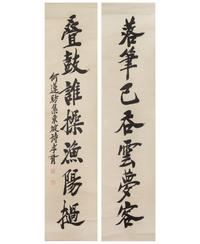 落筆已吞雲夢客
疊鼓誰操漁陽撾
何蓮舫集東坡詩李